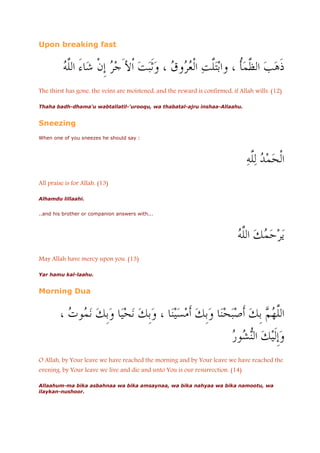 Upon breaking fast
ذَهَبَ الظَّمَأُ ، وابْتَلَّتِ الْعُرُوقُ ، وَثَبَتَ اْلأَجْرُ إِنْ شَاءَ اللَّهُ
The thirst has gone, the veins are moistened, and the reward is confirmed, if Allah wills. (12)
Thaha badh-dhama'u wabtallatil-'urooqu, wa thabatal-ajru inshaa-Allaahu.
Sneezing
When one of you sneezes he should say :
الْحَمْدُ لِلَّهِ
All praise is for Allah. (13)
Alhamdu lillaahi.
..and his brother or companion answers with...
يَرْحَمُكَ اللَّهُ
May Allah have mercy upon you. (13)
Yar hamu kal-laahu.
Morning Dua
اللَّهُمَّ بِكَ أَصْبَحْنَا وَبِكَ أَمْسَيْنَا ، وَبِكَ نَحْيَا وَبِكَ نَمُوتُ ،
وَإِلَيْكَ النُّشُورُ
O Allah, by Your leave we have reached the morning and by Your leave we have reached the
evening, by Your leave we live and die and unto You is our resurrection. (14)
Allaahum-ma bika asbahnaa wa bika amsaynaa, wa bika nahyaa wa bika namootu, wa
ilaykan-nushoor.